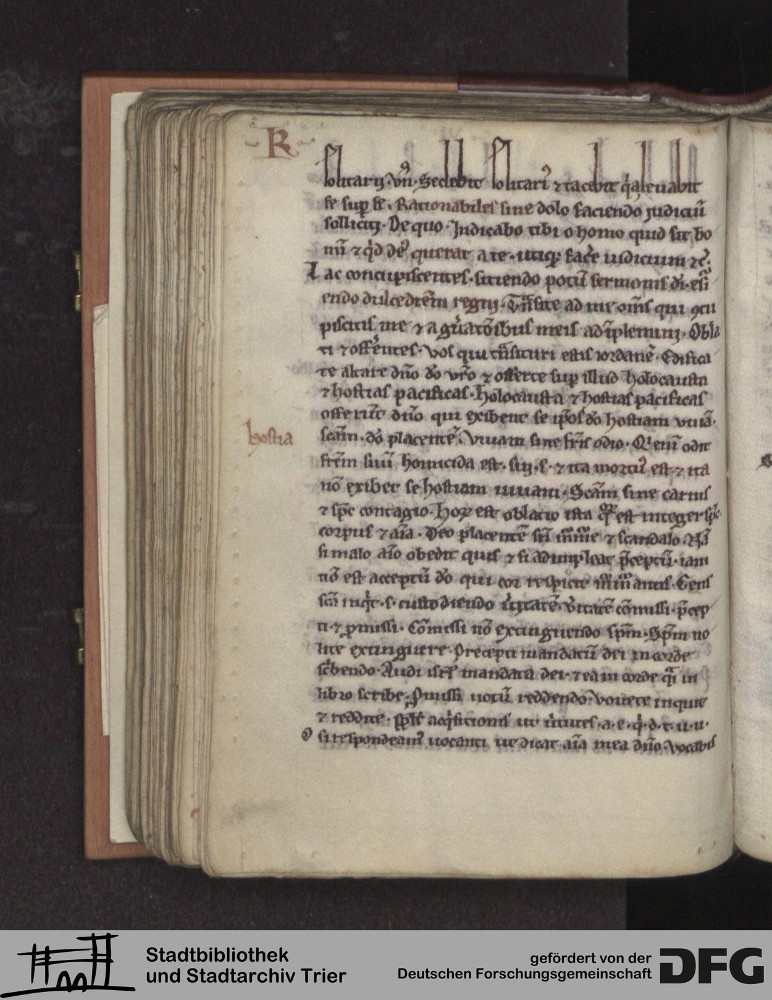 R
solitarij. vn̄. Sedebit solitariꝰ ⁊ tacebit q̓a leuabit
se suꝑ se. Rationabiles sine dolo faciendo iudiciū
De quo. Indicabo tibi o homo quid sit bo
nū ⁊ qͥd deꝰ querat a te. utiqꝫ facͤe iudicium ⁊c̄.
Lac concupiscentes. sitiendo potū sermonis di.
endo dulcedinē regni. ad me om̄s qui ꝯcu
piscitis me ⁊ a meis adīplemini. Obla
ti ⁊ offerentes. vos qui estis iordanē. Edifica
te altare dn̄o do vr̄o ⁊ offerte suꝑ illud holocausta
⁊ hostias pacificas. holocausta ⁊ hostias pacificas
offerūt dn̄o qui exibent se ip̄os do hostiam viuā.
hostia
scām. do placentē. Viuam sine fr̄is odio. Q enī odit
fr̄em suū homicida est. ⁊ ita mortuꝰ est ⁊ ita
nō exibet se hostiam uiuam. Scām sine carnis
⁊ sp̄c contagio. est oblatio ista est integer
corpus ⁊ aīa. Deo placentē ⁊ scandalo. Nā
si malo aīo obedit quis ⁊ si adimpleat p̄ceptū. iam
nō est acceptū do qui cor respicit Gens
scā inqͥt. s. custodiendo cōmissi. p̄cep
ti ⁊ ꝓmissi. Cōmissi nō extinguendo sp̄m. Sp̄m no
lite extinguere. Precepti mandatū dei in corde
sc̄bendo. Audi isrl̄ mandata dei. ⁊ ea in corde in
libro scribe. Ꝓmissi uotū reddendo. vouete inquit
⁊ reddite. acqͥsitionis ut a. e. q. d. t. u. u.
si respondeamꝰ uocanti. ut dicat aīa mea dn̄o. vocabis
Stadtbibliothek
und Stadtarchiv Trier
gefördert von der
Deutschen Forschungsgemeinschaft
DFG